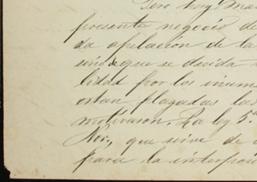 Pero hoy
presente negocio de
da apelacion de la
que se decida
lidad por los inum
estan plagadas las
motivaron. La ley 5ª
que sirve de
para la interposi